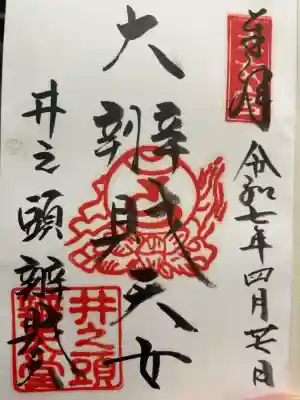 奉拝
令和七年四月 日
大辨財天女
井之頭辨財天
井之頭